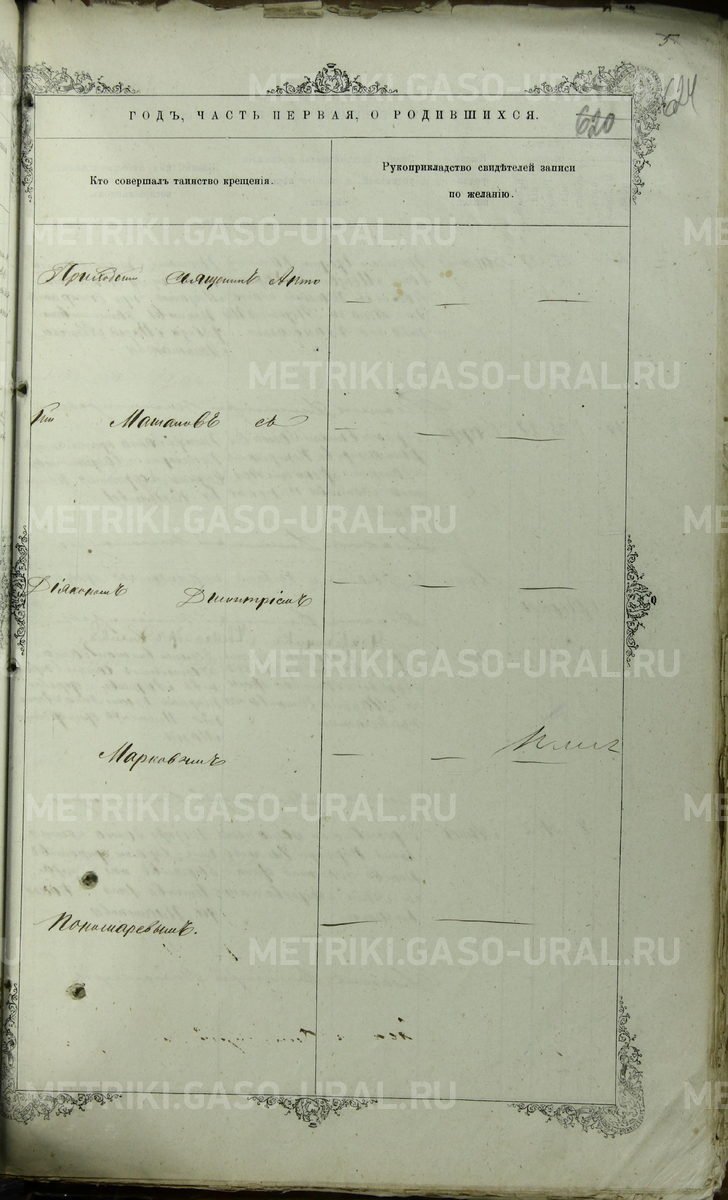 5.
624
ГОДЪ, ЧАСТЬ ПЕРВАЯ, О РОДИВШИХСЯ.
620
Кто совершалъ таинство крещенія.
Рукоприкладство свидѣтелей записи
по желанію.
Приходскій Священникъ Анто
ній съ
Діякономъ Димитріемъ
Марковымъ
Пономаревымъ.
METRIKI.GASO-URAL.RU